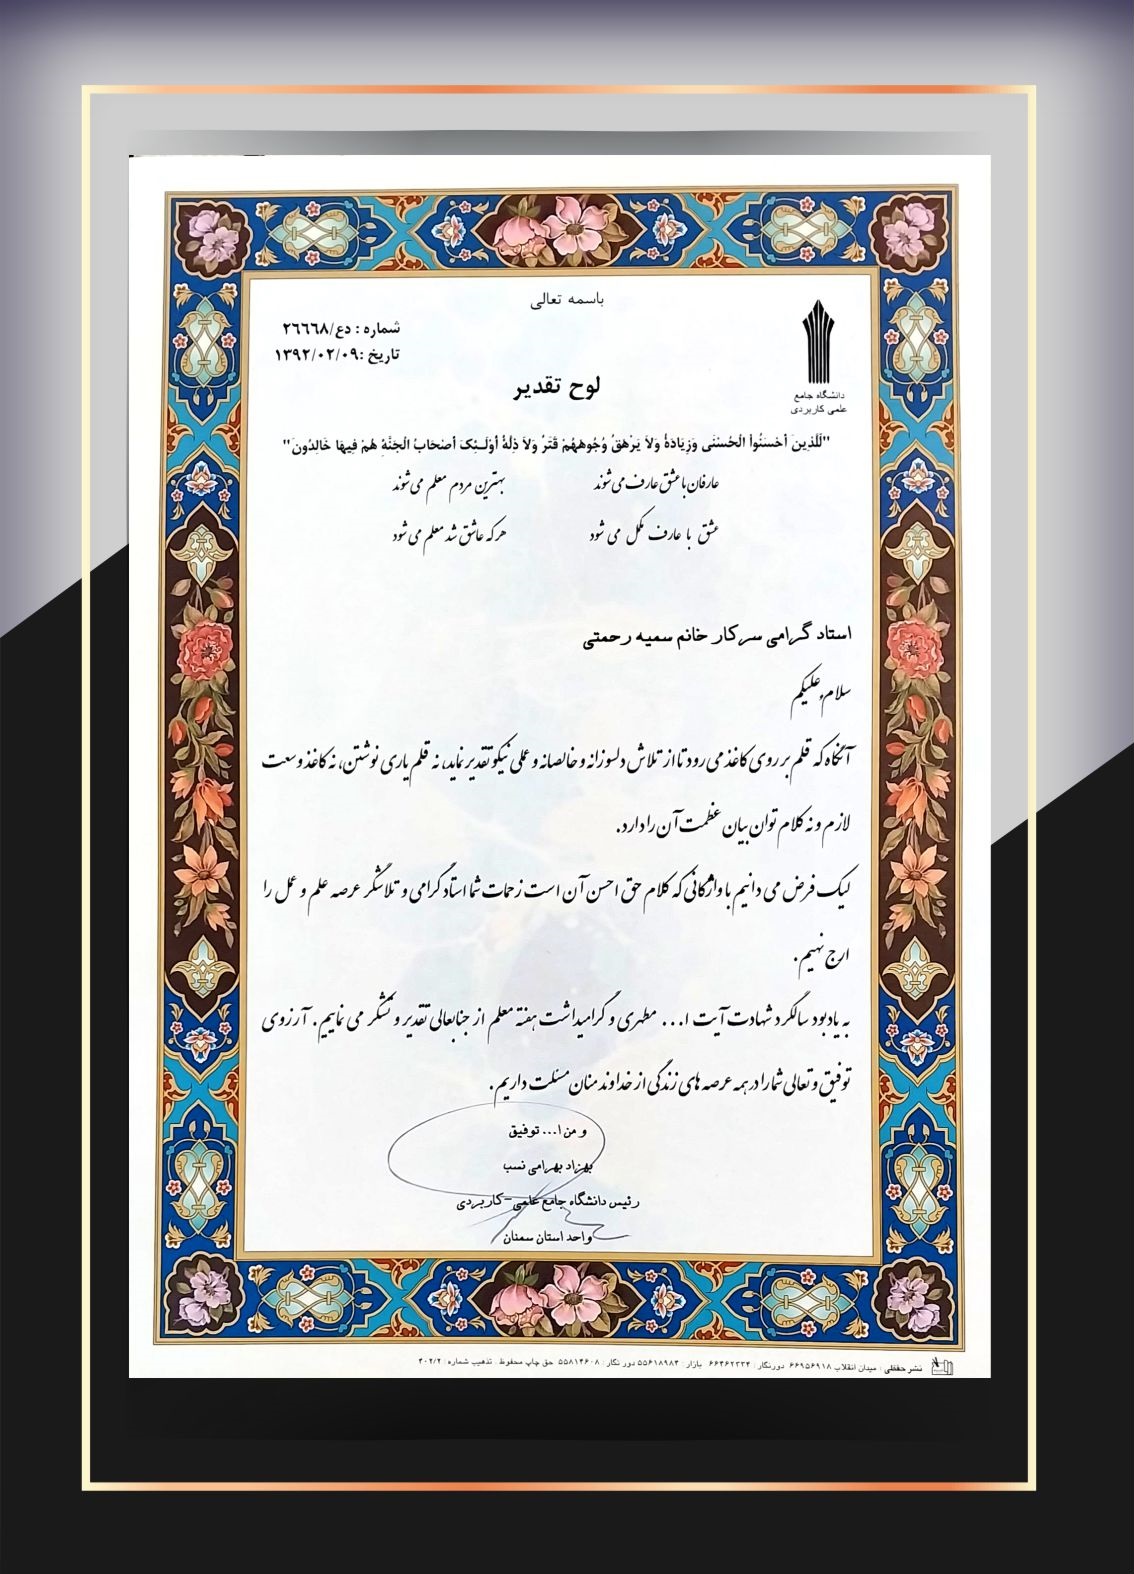 باسمه تعالی
شماره : دع/۲۶۶۶۸
تاریخ :۱۳۹۲/۰۲/۰۹
دانشگاه جامع
علمی کاربردی
لوح تقدیر
"لِّلَّذِینَ أَحْسَنُواْ الْحُسْنَى وَزِیَادَةٌ وَلاَ یَرْهَقُ وُجُوهَهُمْ قَتَرٌ وَلاَ ذِلَّةٌ أُوْلَـئِکَ أَصْحَابُ الْجَنَّةِ هُمْ فِیهَا خَالِدُونَ"
عارفان با عشق عارف می شوند بهترین مردم معلم می شوند
عشق با عارف مکمل می شود هر که عاشق شد معلم می شود
استاد گرامی سرکار خانم سمیه رحمتی
سلام علیکم
آنگاه که قلم بر روی کاغذ می رود تا از تلاش دلسوزانه و خالصانه و عملی نیکو تقدیر نماید، نه قلم یاری نوشتن، نه کاغذ وسعت
لازم و نه کلام توان بیان عظمت آن را دارد.
لیک فرض می دانیم با واژگانی که کلام حق احسن آن است زحمات شما استاد گرامی و تلاشگر عرصه علم و عمل را
ارج نهیم.
به یادبود سالگرد شهادت آیت ا... مطهری و گرامیداشت هفته معلم از جنابعالی تقدیر و تشکر می نماییم. آرزوی
توفیق و تعالی شما را در همه عرصه های زندگی از خداوند منان مسئلت داریم.
و من ا... توفیق
بهزاد بهرامی نسب
رئیس دانشگاه جامع علمی-کاربردی
واحد استان سمنان
نشر حفظی : میدان انقلاب ۶۶۹۵۶۹۱۸ دورنگار : ۶۶۴۶۲۳۳۴ بازار : ۵۵۶۱۸۹۸۴ دور نگار : ۵۵۸۱۴۶۰۸ حق چاپ محفوظ . تذهیب شماره : ۴۰۲/۲